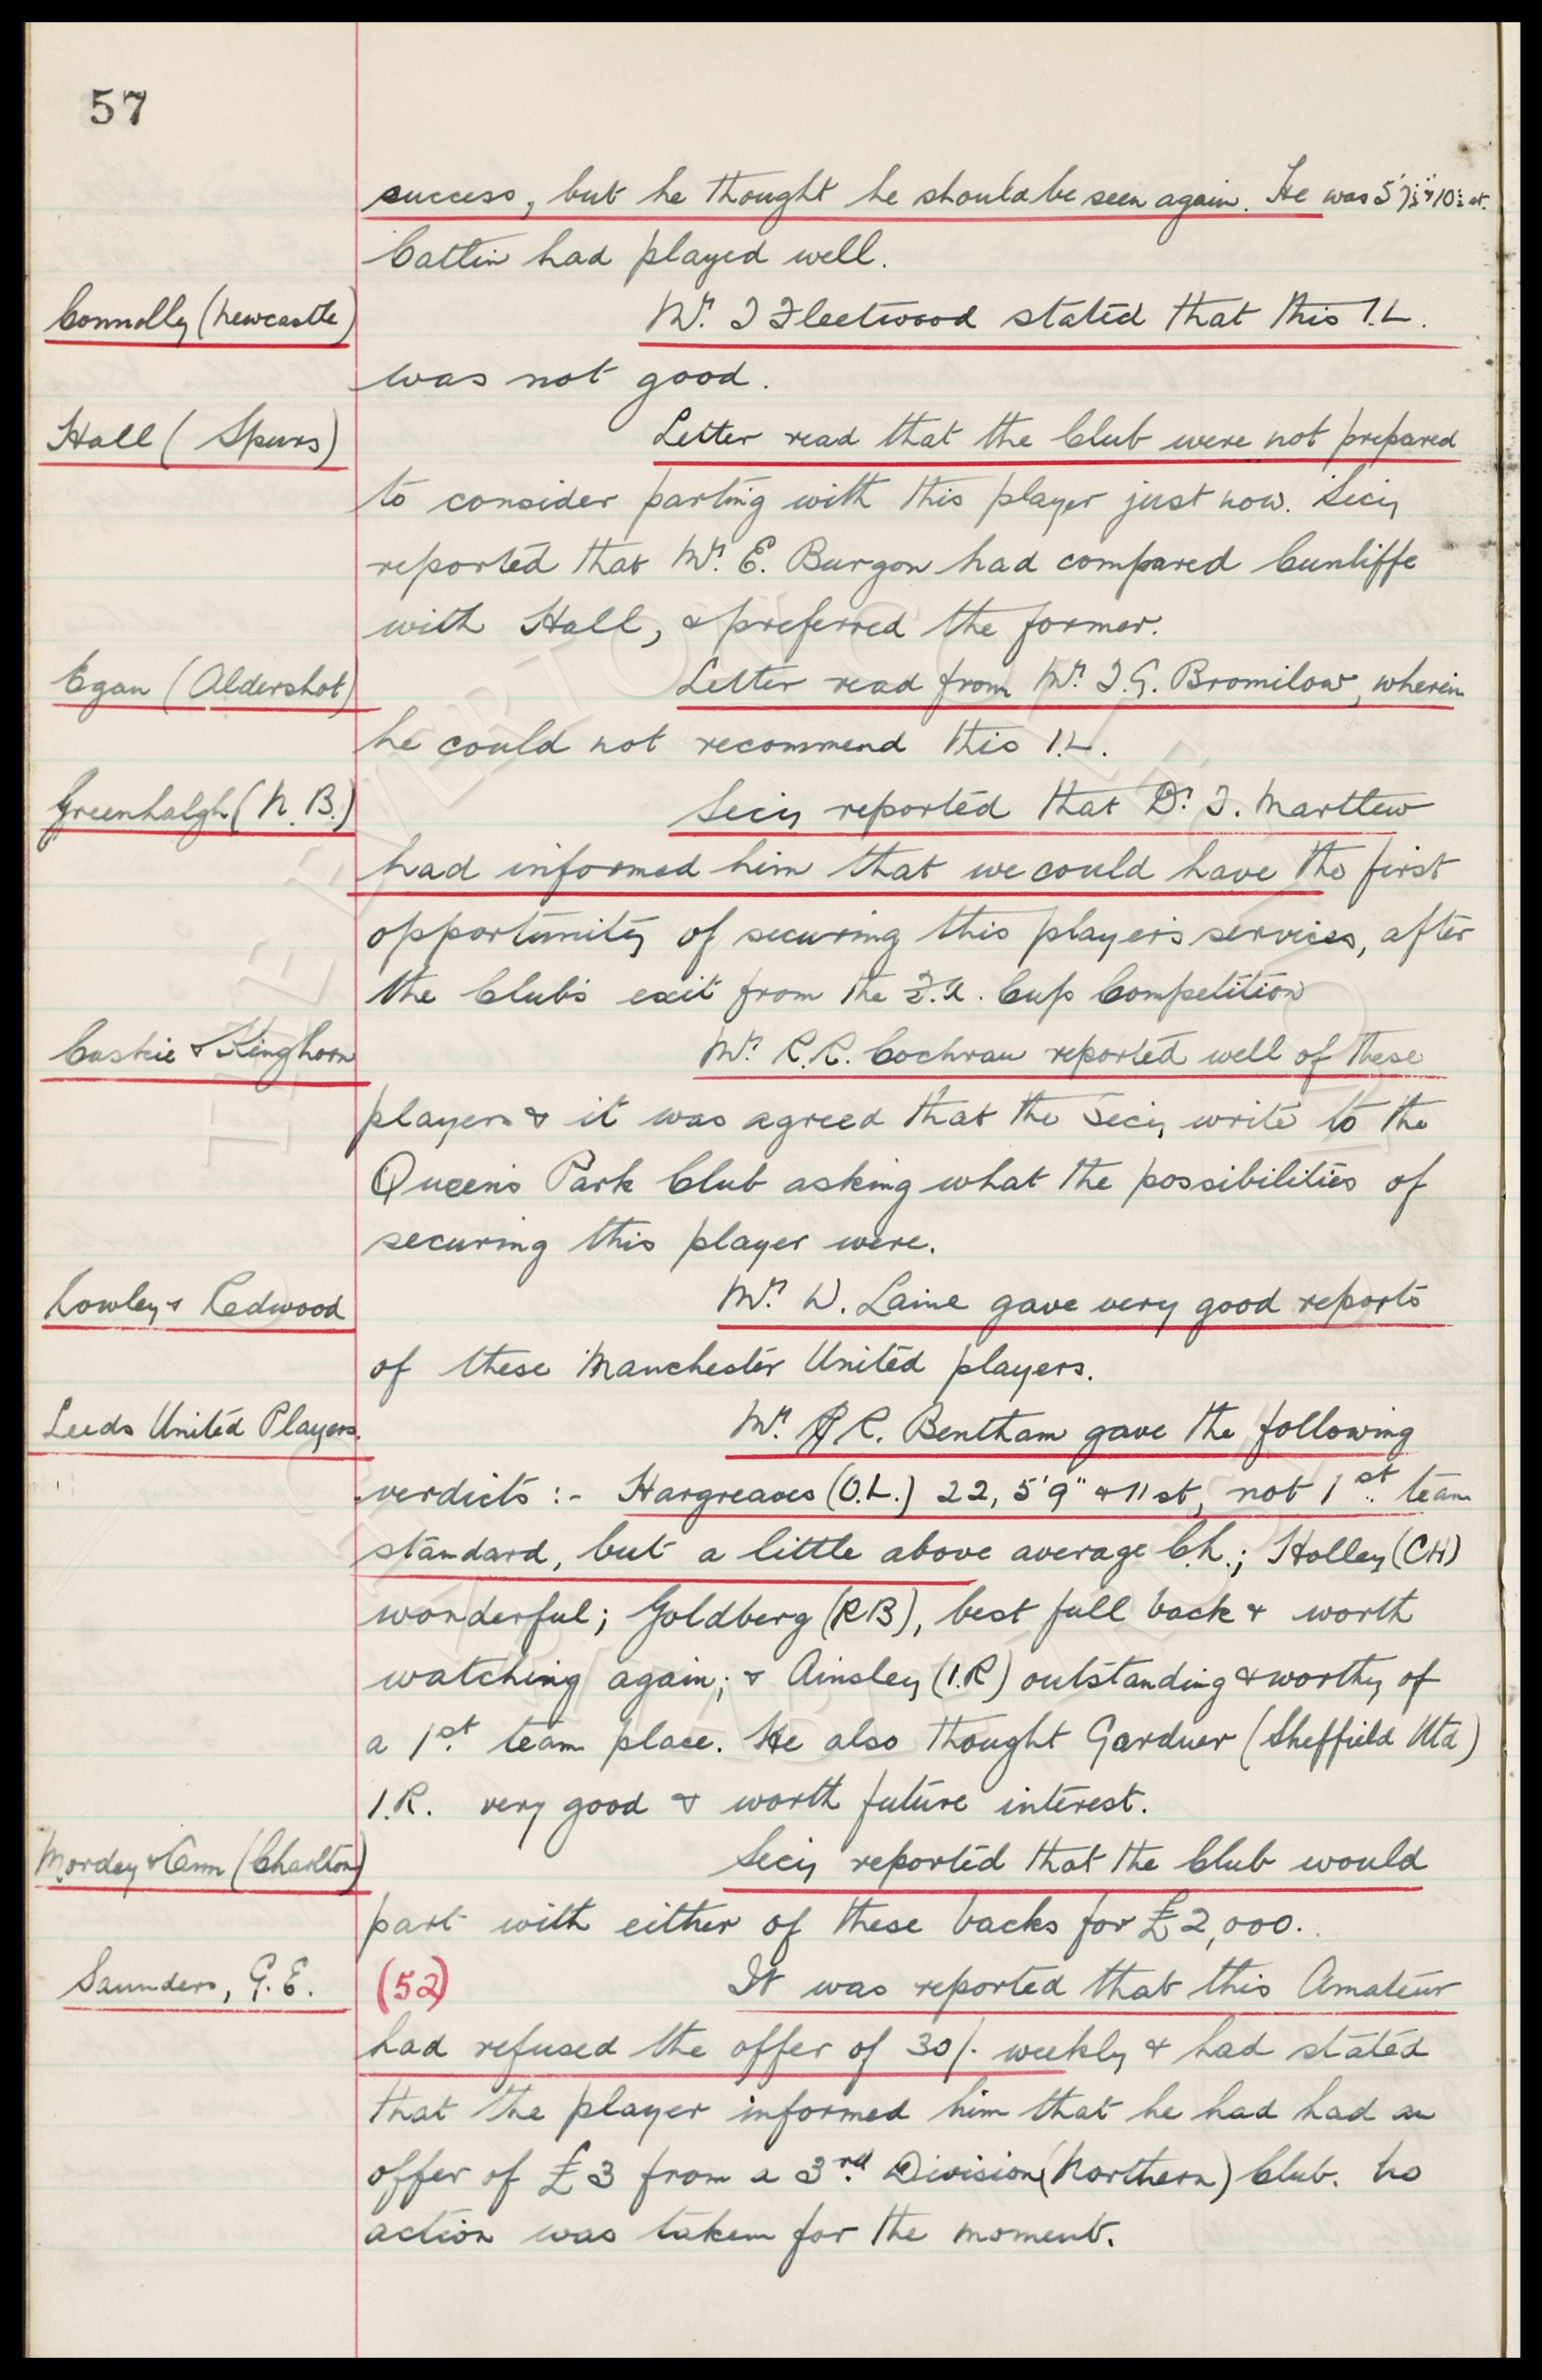 57
success, but he thought he should be seen again. He was 5'7½" & 10½ st.
Cattlin had played well.
Connolly (Newcastle) Mr. T Fleetwood stated that this I.L.
was not good.
Hall (Spurs) Letter read that the Club were not prepared
to consider parting with this player just now. Secy
reported that Mr. E. Burgon had compared Cunliffe
with Hall, & preferred the former.
Egan (Aldershot) Letter read from Mr. T.G. Bromilow, wherein
he could not recommend this I.L.
Greenhalgh (N.B.) Secy reported that Dr. T. Marttew
had informed him that we could have the first
opportunity of securing this player's services, after
the Club's exit from the F.A. Cup Competition
Caskie & Kinghorn Mr. R.R. Cochran reported well of these
players & it was agreed that the Secy write to the
Queen's Park Club asking what the possibilities of
securing this player were.
Lowley & Redwood Mr. W. Laine gave very good reports
of these Manchester United players.
Leeds United Players. Mr. R. Bentham gave the following
verdicts :- Hargreaves (O.L.) 22, 5'9" & 11 st, not 1st. team
standard, but a little above average C.L.; Holley (CH)
wonderful; Goldberg (RB), best full back & worth
watching again; & Ainsley (I.R) outstanding & worthy of
a 1st. team place. He also thought Gardner (Sheffield Utd)
I.R. very good & worth future interest.
Mordey & Cann (Charlton) Secy reported that the Club would
part with either of these backs for £2,000.
Saunders, G.E. (52) It was reported that this Amateur
had refused the offer of 30/- weekly & had stated
that the player informed him that he had had an
offer of £3 from a 3rd. Division (Northern) Club. No
action was taken for the moment.